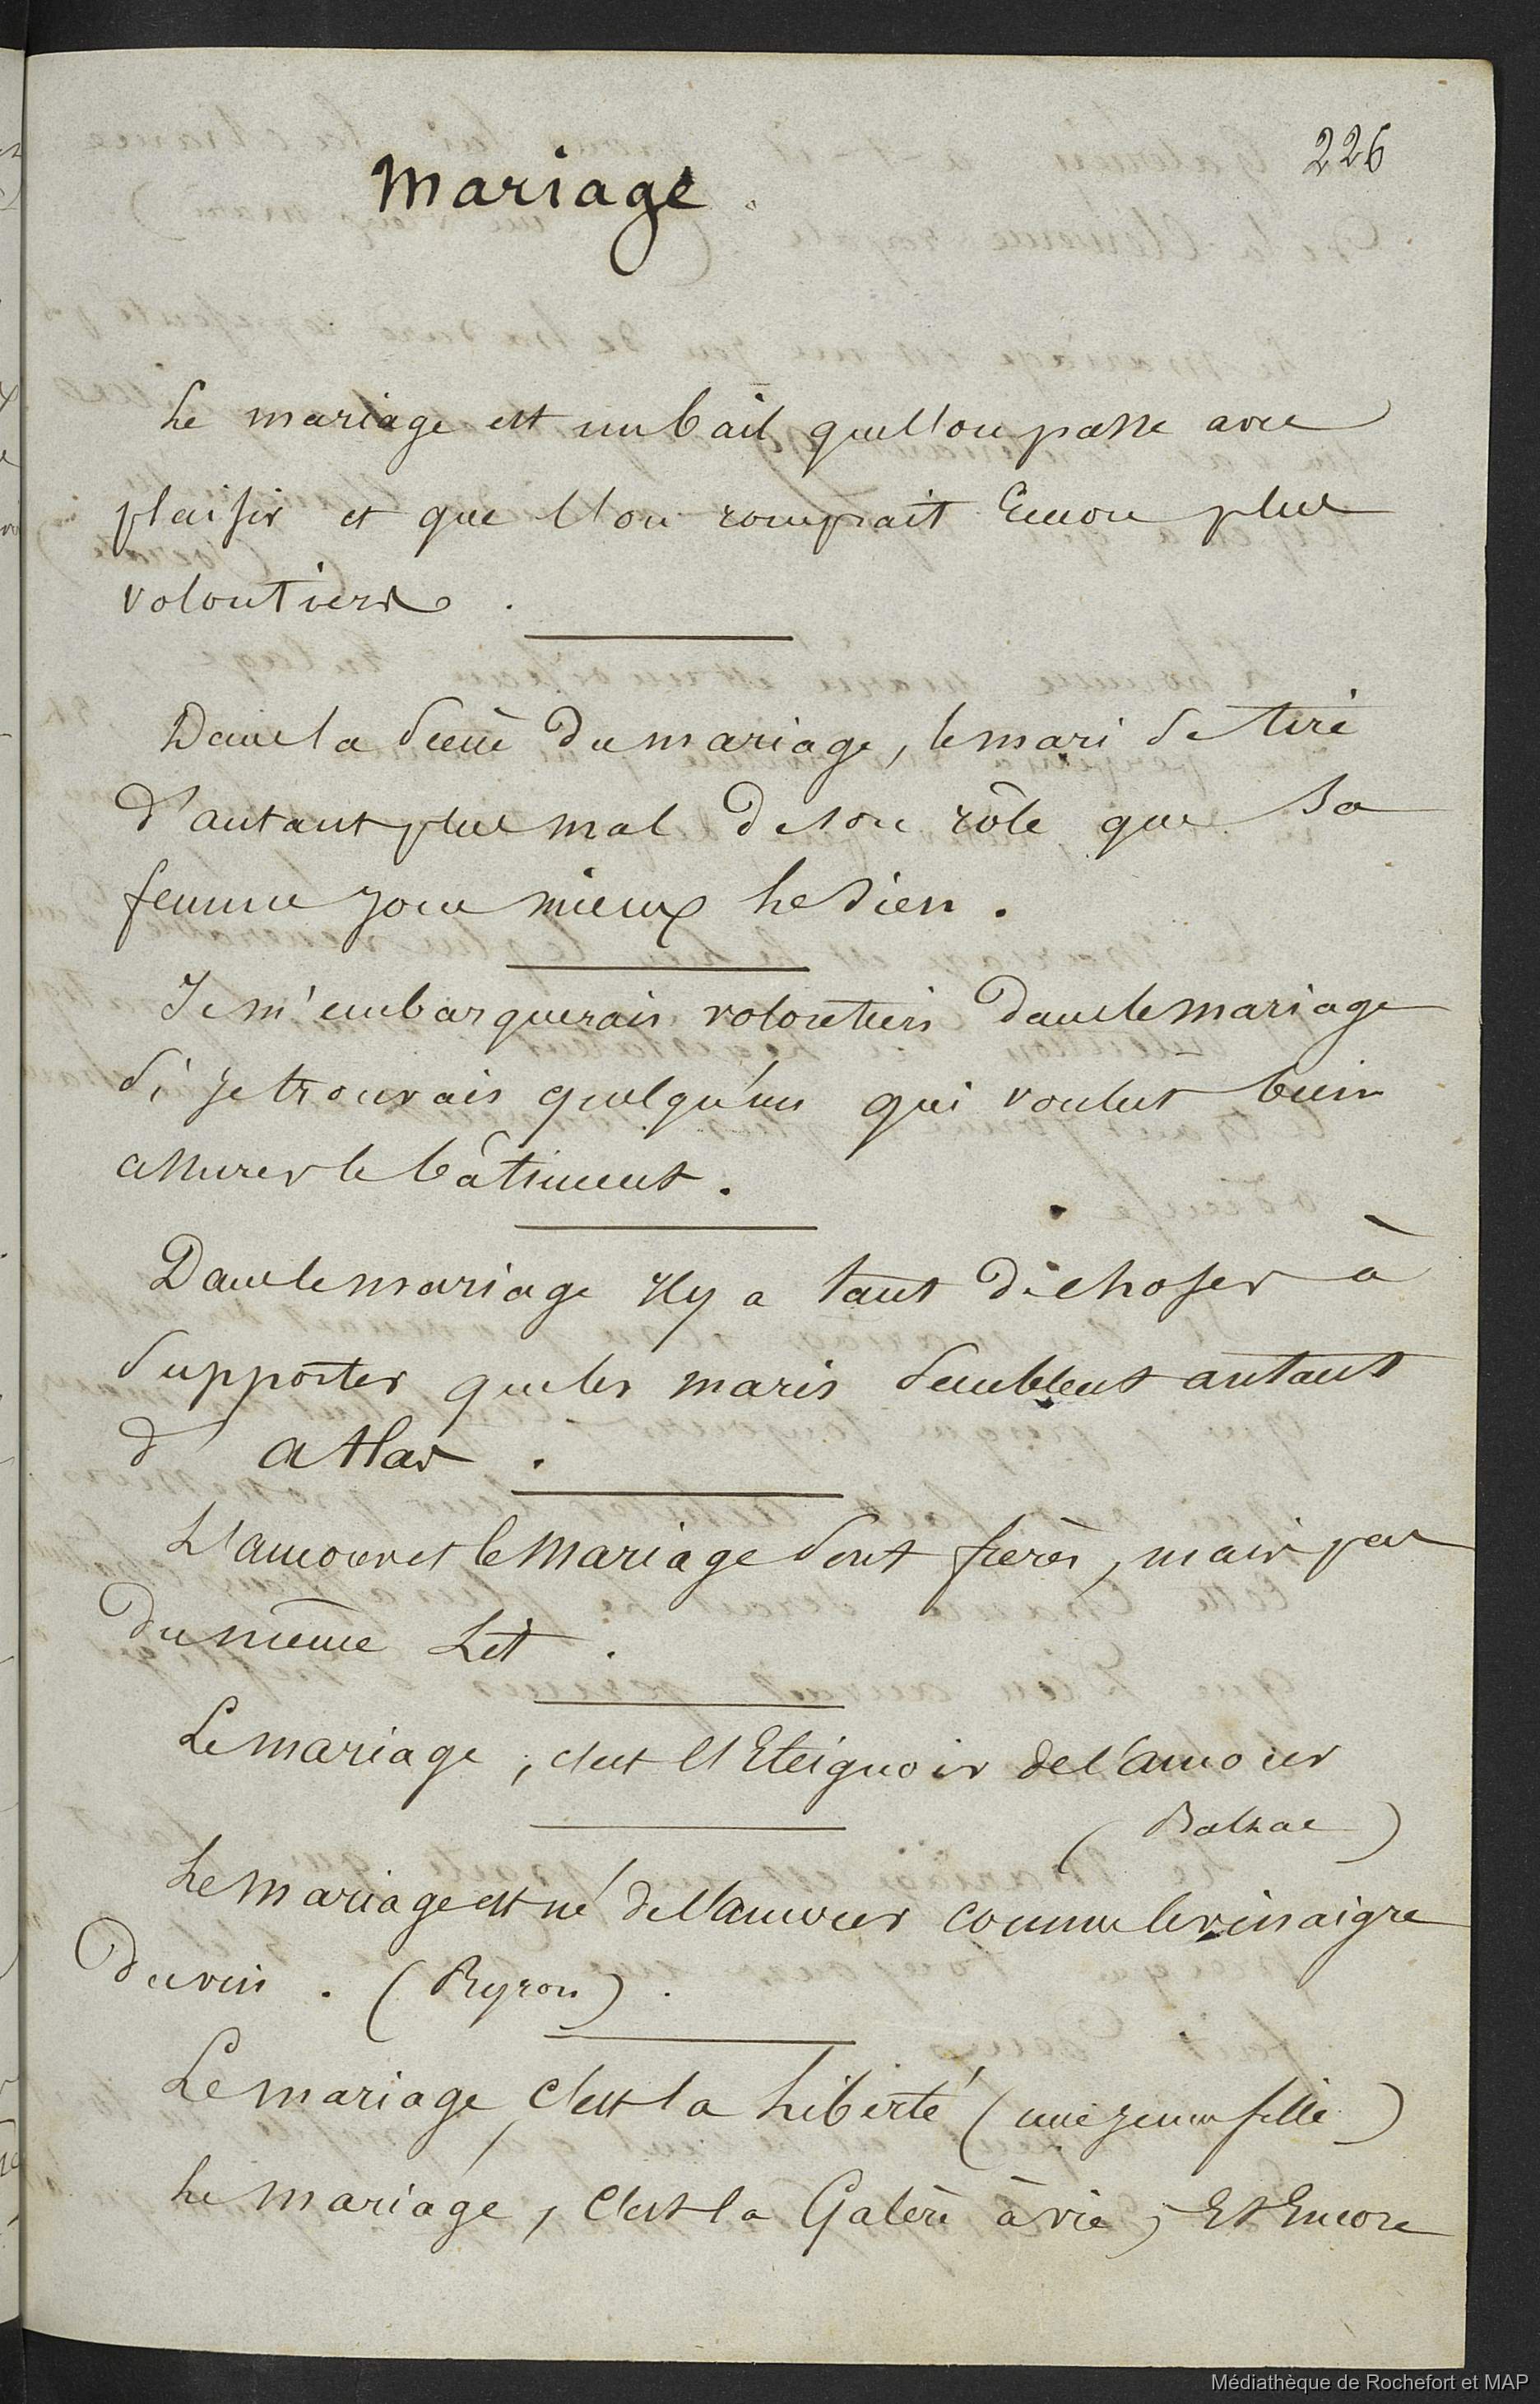 226
Mariage.
Le mariage est un bail que l'on passe avec
plaisir et que l'on romprait Encore plus
volontiers.
Dans la scène du mariage, le mari se tire
d'autant plus mal de son rôle que sa
femme joue mieux le sien.
Je m'embarquerais volontiers dans le mariage
si je trouvais quelqu'un qui voulut bien
assurer le bâtiment.
Dans le mariage il y a tant de choses à
supporter que les maris semblent autant
d'atlas.
L'amour et le Mariage sont frères, mais pas
du même Lit.
Le mariage, c'est l'Eteignoir de l'amour
(Balzac)
Le Mariage est né de l'amour comme le vinaigre
du vin. (Byron).
Le mariage, C'est la Liberté (une jeune fille)
Le Mariage, C'est la Galère à vie, Et Encore
Médiathèque de Rochefort et MAP